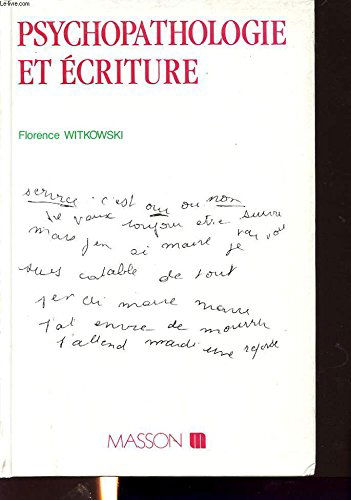 PSYCHOPATHOLOGIE
ET ÉCRITURE
Florence WITKOWSKI
c'est oui ou non
Je veux toujour etre suivre
mais j'en ai marre je
suis catable de tout
J'en ai marre marre
J'ai envie de mourrir
J'attend mardi une
MASSON m